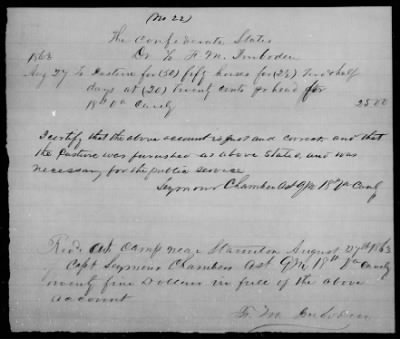 (No 22)
The Confederate States
1863 Dr To F. M. Imboden
Aug 27 To Pasture for (50) fifty horses for (2½) two & half
days at (20) twenty cents pr head for
18th Va Cavly 25.00
I certify that the above account is just and correct, and that
the pasture was furnished as above stated, and was
necessary for the public service
Seymour Chambers Ast Q M 18th Va Cavly
Recd at Camp near Staunton August 27th 1863
Capt Seymour Chambers Ast Q M 18th Va Cavly
twenty five Dollars in full of the above
account
F. M. Imboden